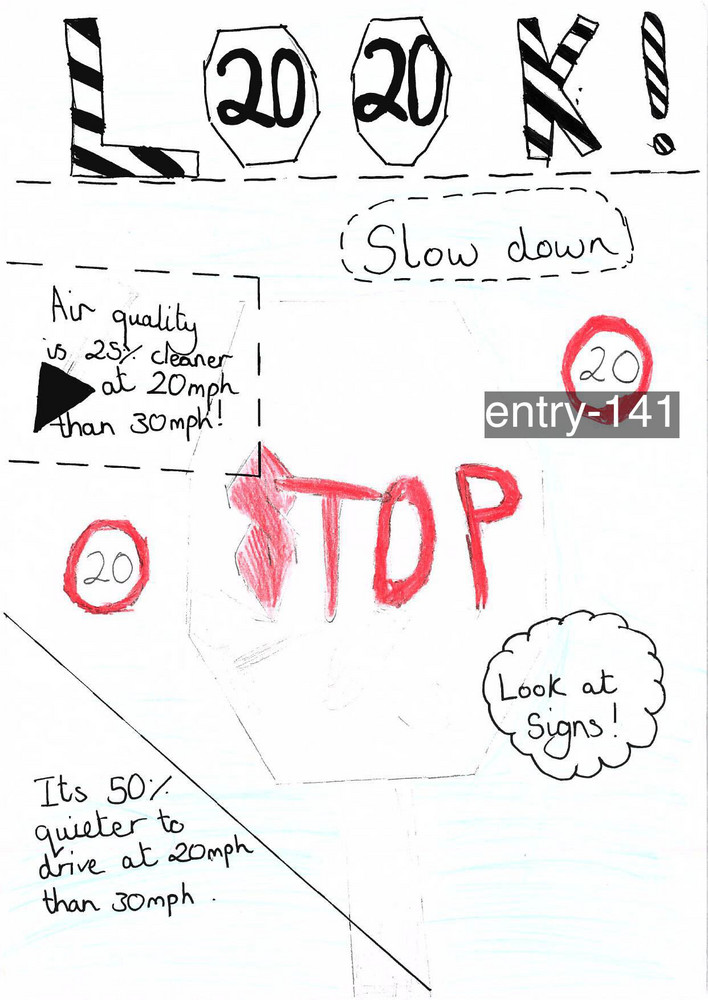 L 20 20 K!
Slow down
Air quality
is 25% cleaner
at 20mph
than 30mph!
20
entry-141
STOP
20
Look at
Signs!
Its 50%
quieter to
drive at 20mph
than 30mph.